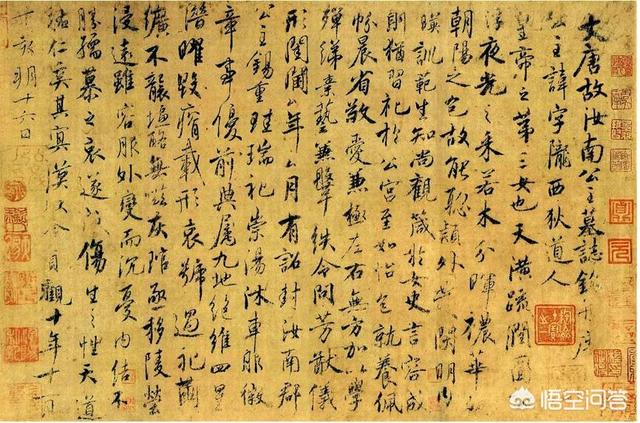 大唐故汝南公主墓誌銘并序
公主諱字隴西狄道人
皇帝之第三女也天潢疏潤圓
浮夜光之采若木分暉穠華
朝陽之色故能聰穎外發閑明內
暎訓範生知尚觀箴於女史言容成
則猶習礼於公宮至如怡色就養佩
帉晨省敬愛兼極左右無方加以學
殫綈素藝兼鞶紩令問芳猷儀
形閨閫公年公月有詔封汝南郡
公主錫重珪瑞礼崇湯沐車服徽
章事優前典屬九地絕維四星
潛曜毀瘠載形哀號過礼繭
纊不襲塩酪無嗞灰琯亟移陵塋
浸遠雖容服外變而沉憂內結不
勝孺慕之哀遂成傷生之性天道
祐仁奚其冥漠以今貞觀十年十一
朔十六日
悟空问答